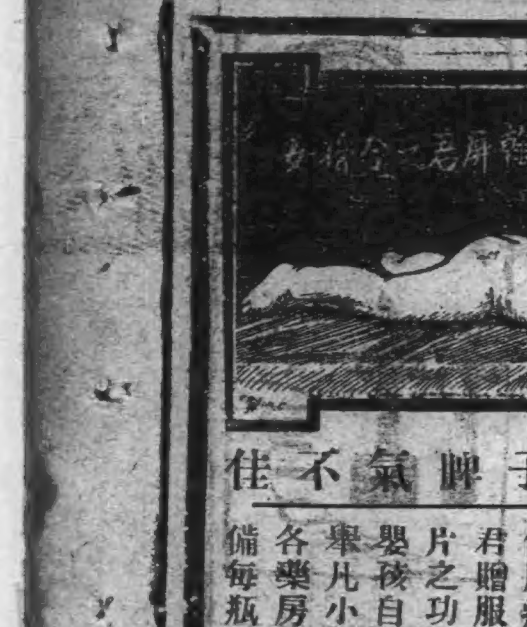 屏君之令
子脾氣不佳
君贈服
片之功
嬰孩自
舉凡小
各藥房
備每瓶